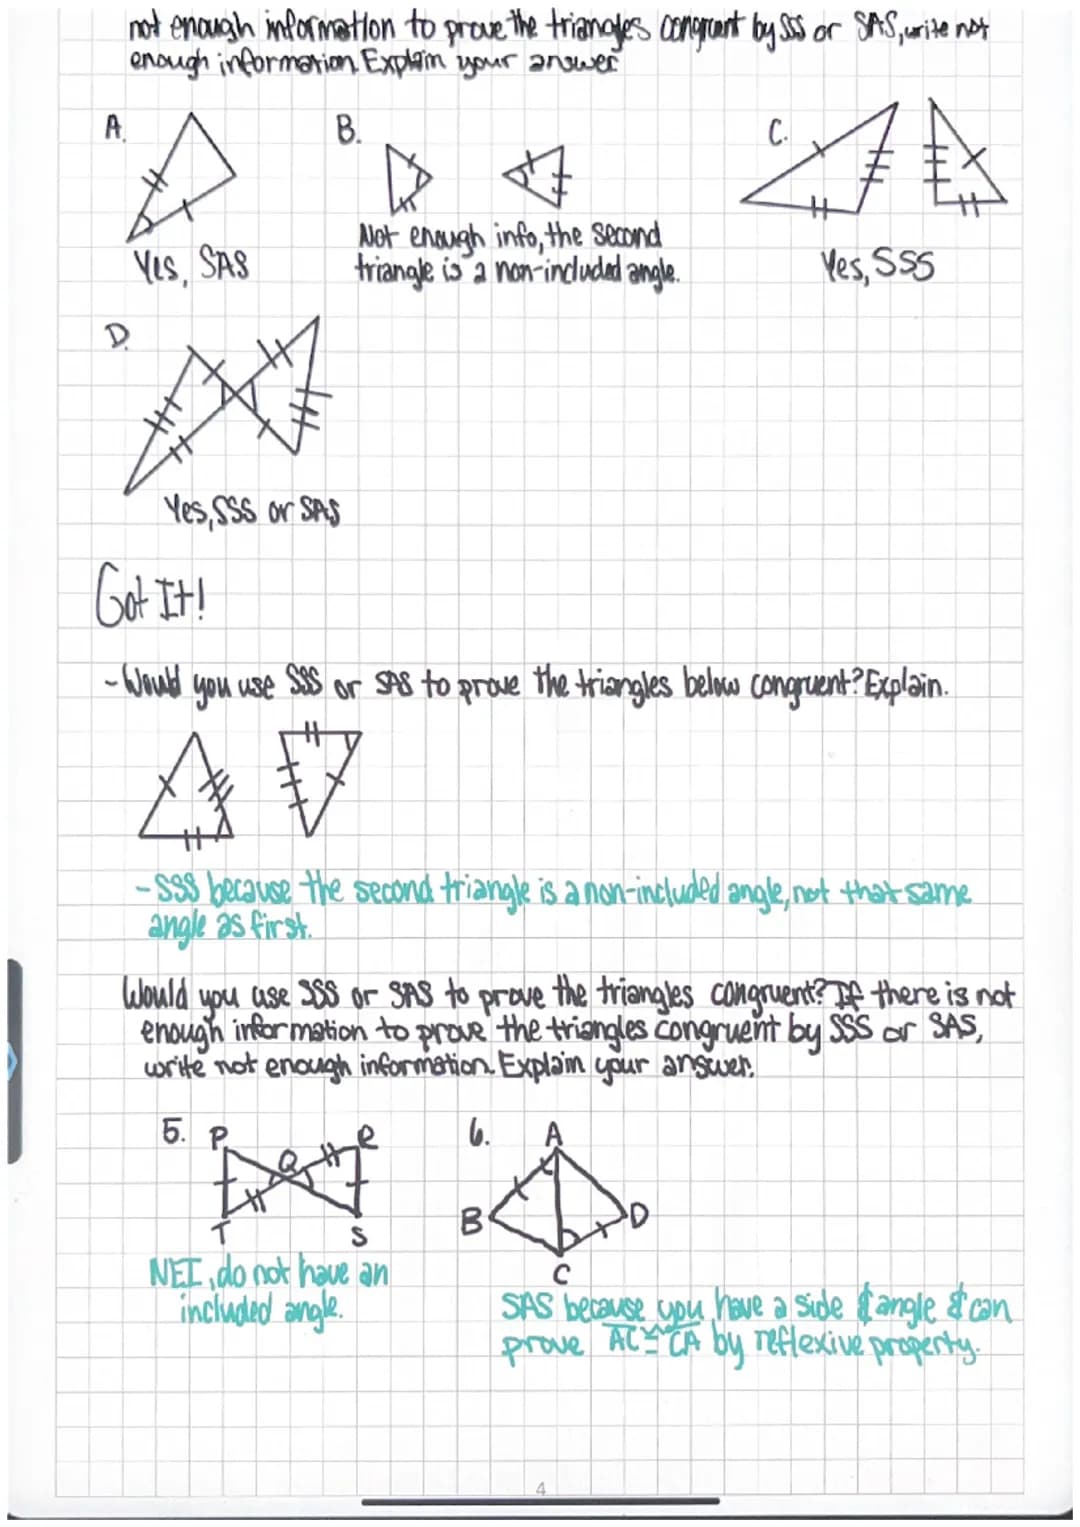 not enough information to prove the triangles congruent by SSS or SAS, write not
enough information. Explain your answer
A.
B.
C.
Not enough info, the second
triangle is a non-included angle.
Yes, SAS
Yes, SSS
D.
Yes, SSS or SAS
Got It!
- Would you use SSS or SAS to prove the triangles below congruent? Explain.
- SSS because the second triangle is a non-included angle, not that same
angle as first.
Would you use SSS or SAS to prove the triangles congruent? If there is not
enough information to prove the triangles congruent by SSS or SAS,
write not enough information. Explain your answer.
5. P R
Q
T S
NEI, do not have an
included angle.
6. A
B D
C
SAS because you have a side & angle & can
prove AC ≅ CA by reflexive property.
4